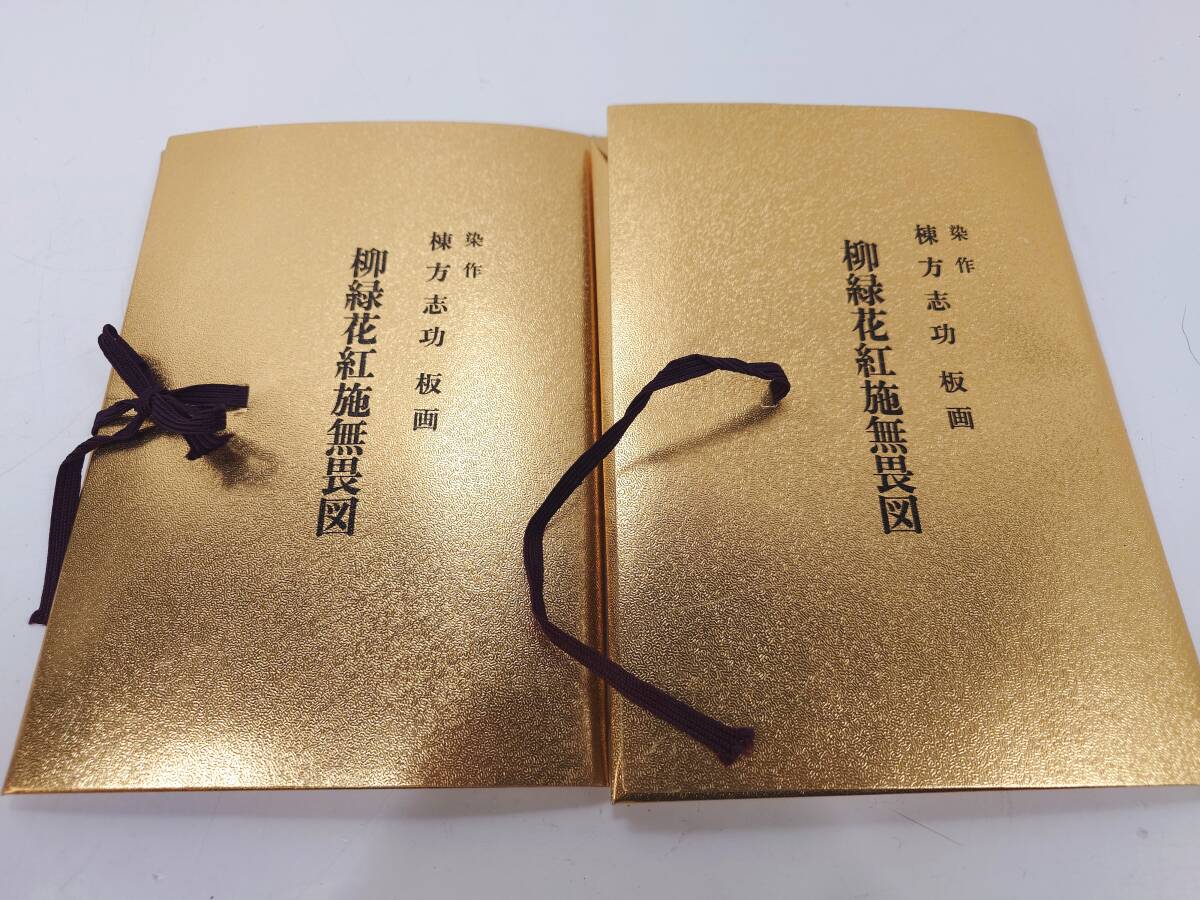 染作
棟方志功 板画
柳緑花紅施無畏図
染作
棟方志功 板画
柳緑花紅施無畏図